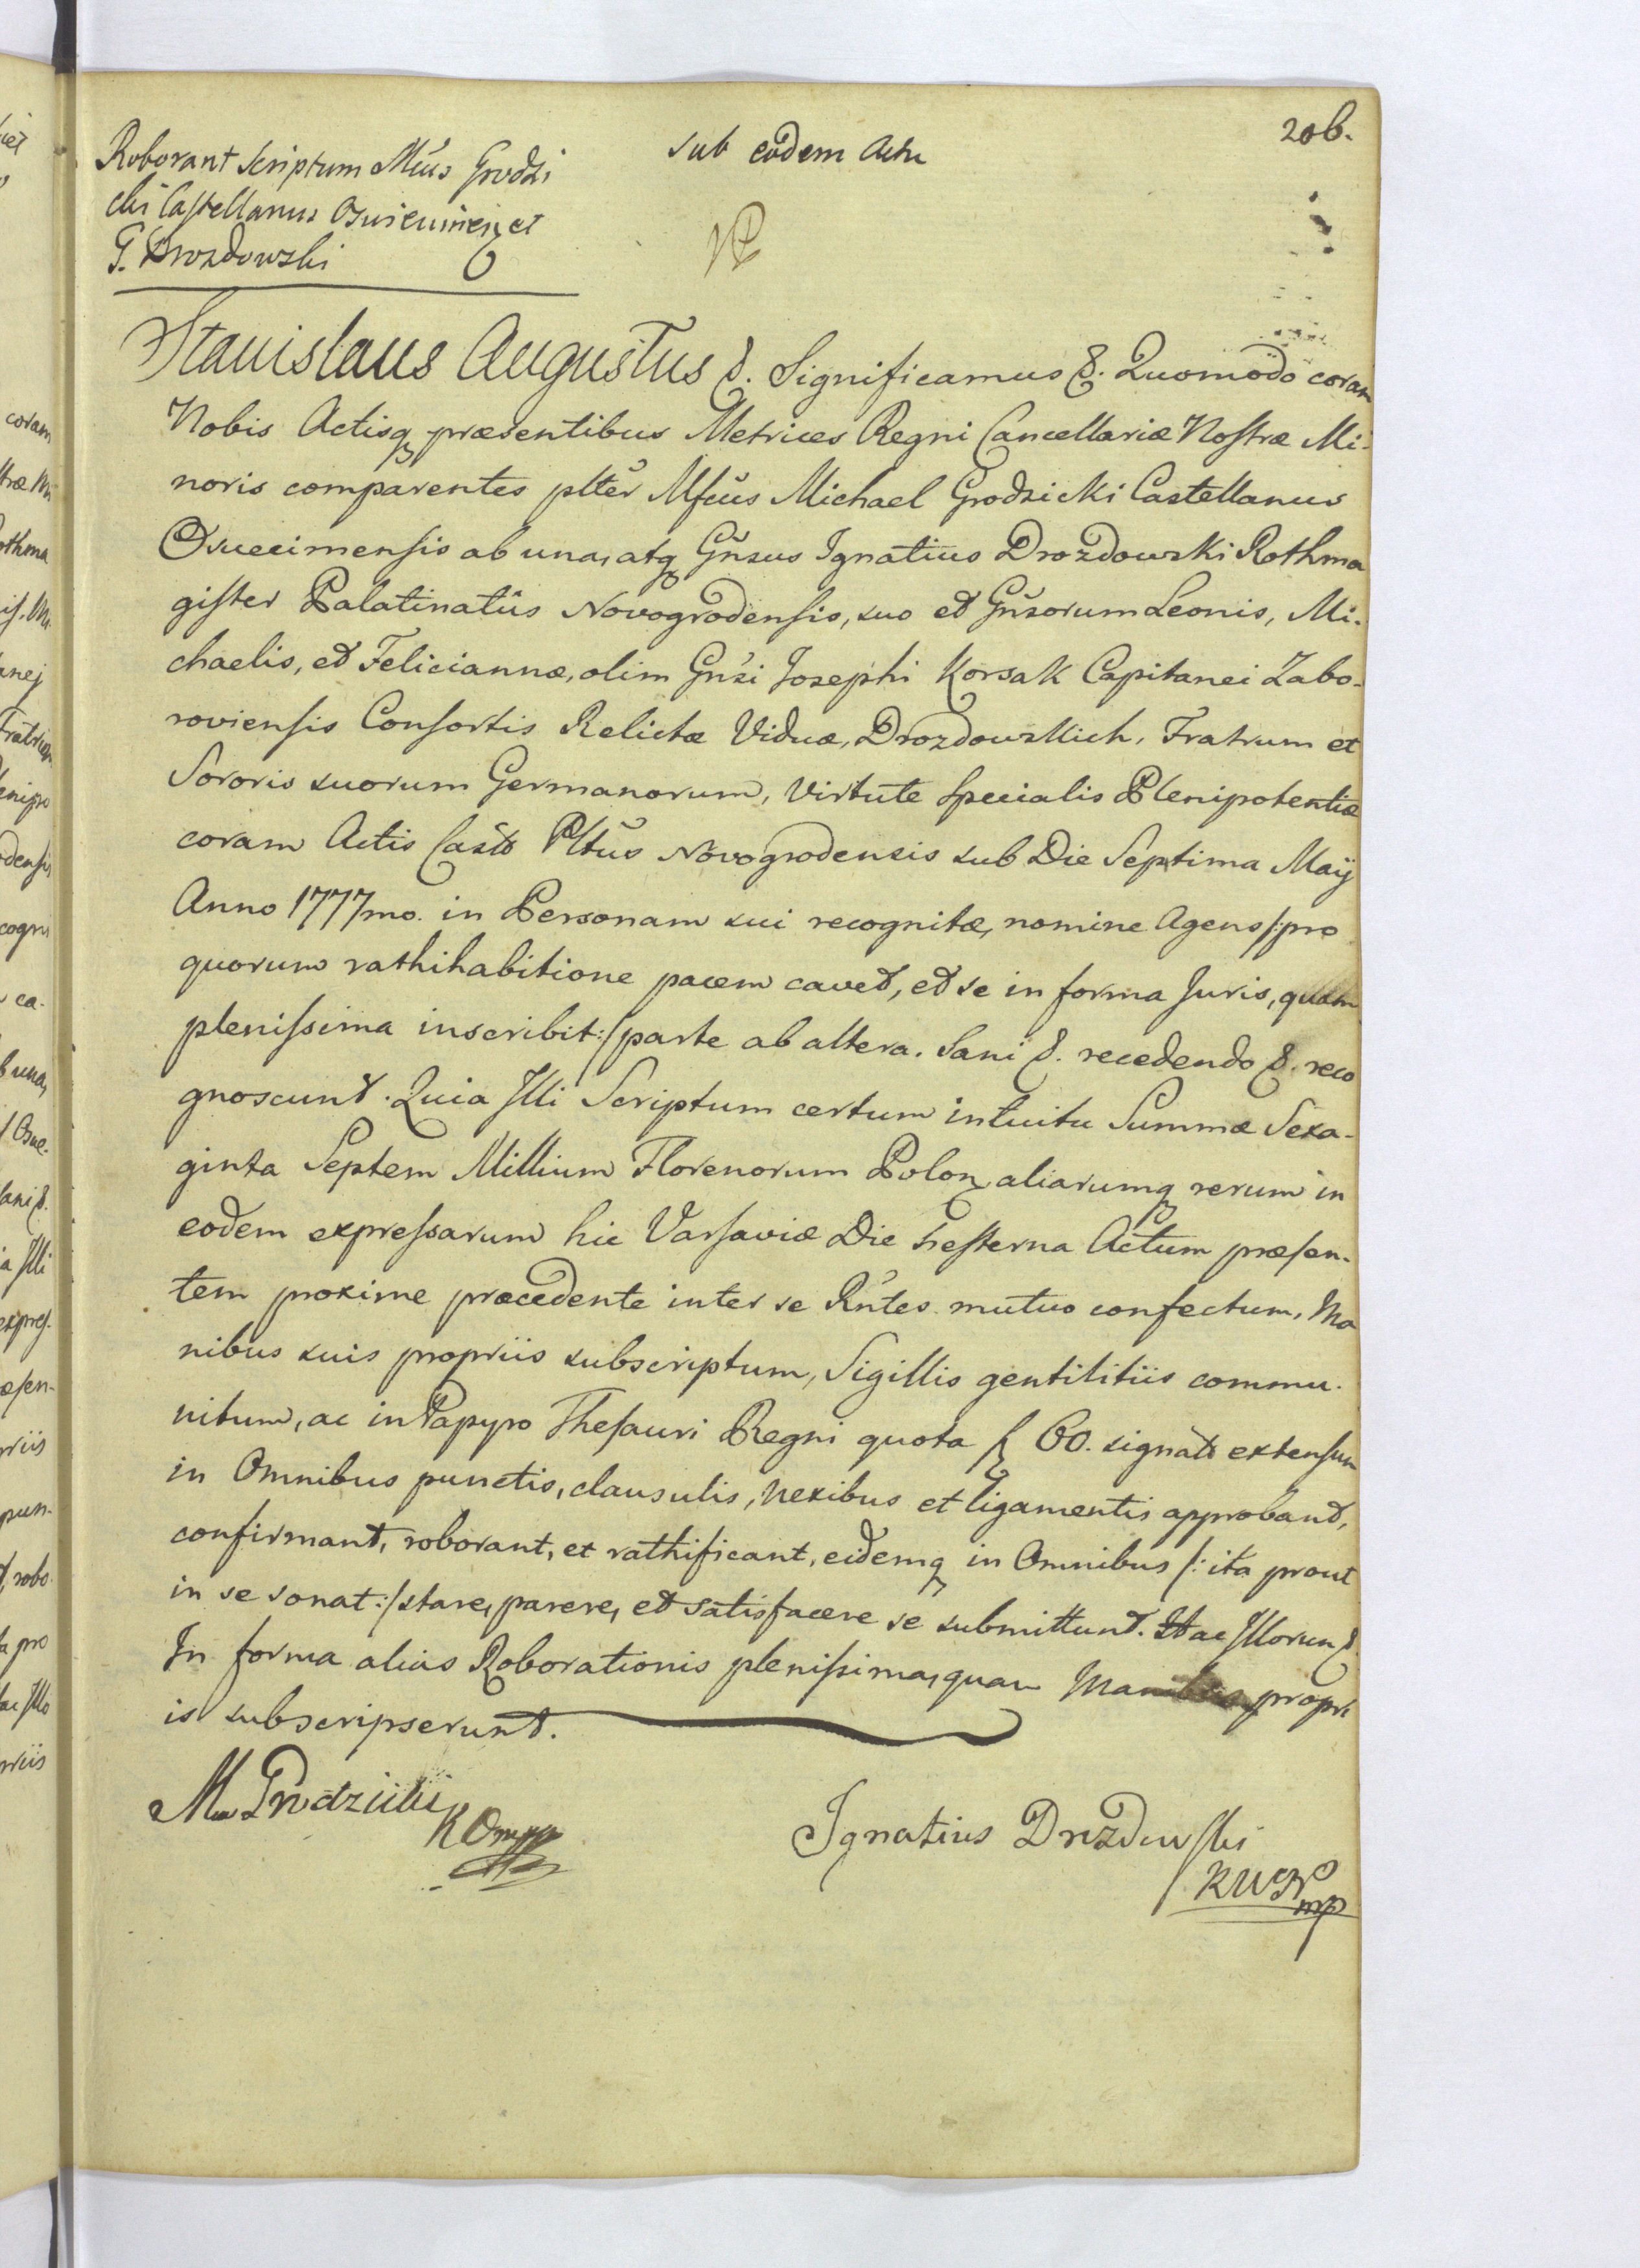 206.
sub eodem Actu
Roborant Scriptum Mcus Grodzi
cki Castellanus Oswiecimen et
G. Drozdowski
Stanislaus Augustus &. Significamus &. Quomodo coram
Nobis Actisq præsentibus Metrices Regni Cancellariæ Nostræ Mi-
noris comparentes plter Mfcus Michael Grodzicki Castellanus
Osuecimensis ab una, atq Gnsus Ignatius Drozdowski Rothma
gister Palatinatûs Novogrodensis, suo et Gnsorum Leonis, Mi-
chaelis, et Feliciannæ, olim Gnsi Josephi Korsak Capitanei Zabo-
roviensis Consortis Relictæ Viduæ, Drozdowskich, Fratrum et
Sororis suorum Germanorum, Virtute specialis Plenipotentiæ
coram Actis Castr Pltûs Novogrodensis sub Die Septima Maij
Anno 1777mo. in Personam sui recognitæ, nomine Agens /:pro
quorum rathihabitione pacem cavet, et se in forma Juris, quam
plenissima inscribit:/ parte ab altera. Sani &. recedendo &. reco
gnoscunt. Quia Illi Scriptum certum intuitu Summæ Sexa-
ginta Septem Millium Florenorum Polon aliarumq rerum in
eodem expressarum hic Varsaviæ Die hesterna Actum præsen-
tem proxime præcedente inter se Rntes mutuo confectum, Ma
nibus suis propriis subscriptum, Sigillis gentilitiis commu-
nitum, ac in Papyro Thesauri Regni quota f 60. signato extensum
in Omnibus punctis, clausulis, nexibus et ligamentis approbant,
confirmant, roborant, et rathificant, eidemq in Omnibus /: ita prout
in se sonat:/ stare, parere, et satisfacere se submittunt. Hac Illorum &.
In forma alias Roborationis plenissima, quam Manibus propri
is subscripserunt.
M Grodzicki
KO mp
Ignatius Drozdowski
RWN mp